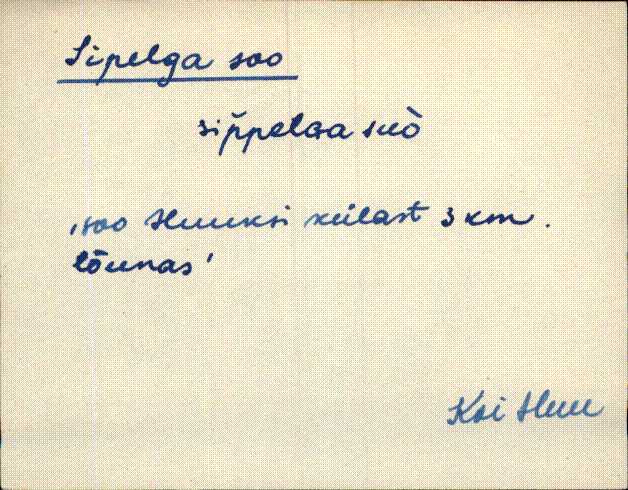 Sipelga soo
sip̆pelGa suò
'soo Huuksi külast 3 km.
lõunas'
Koi Huu